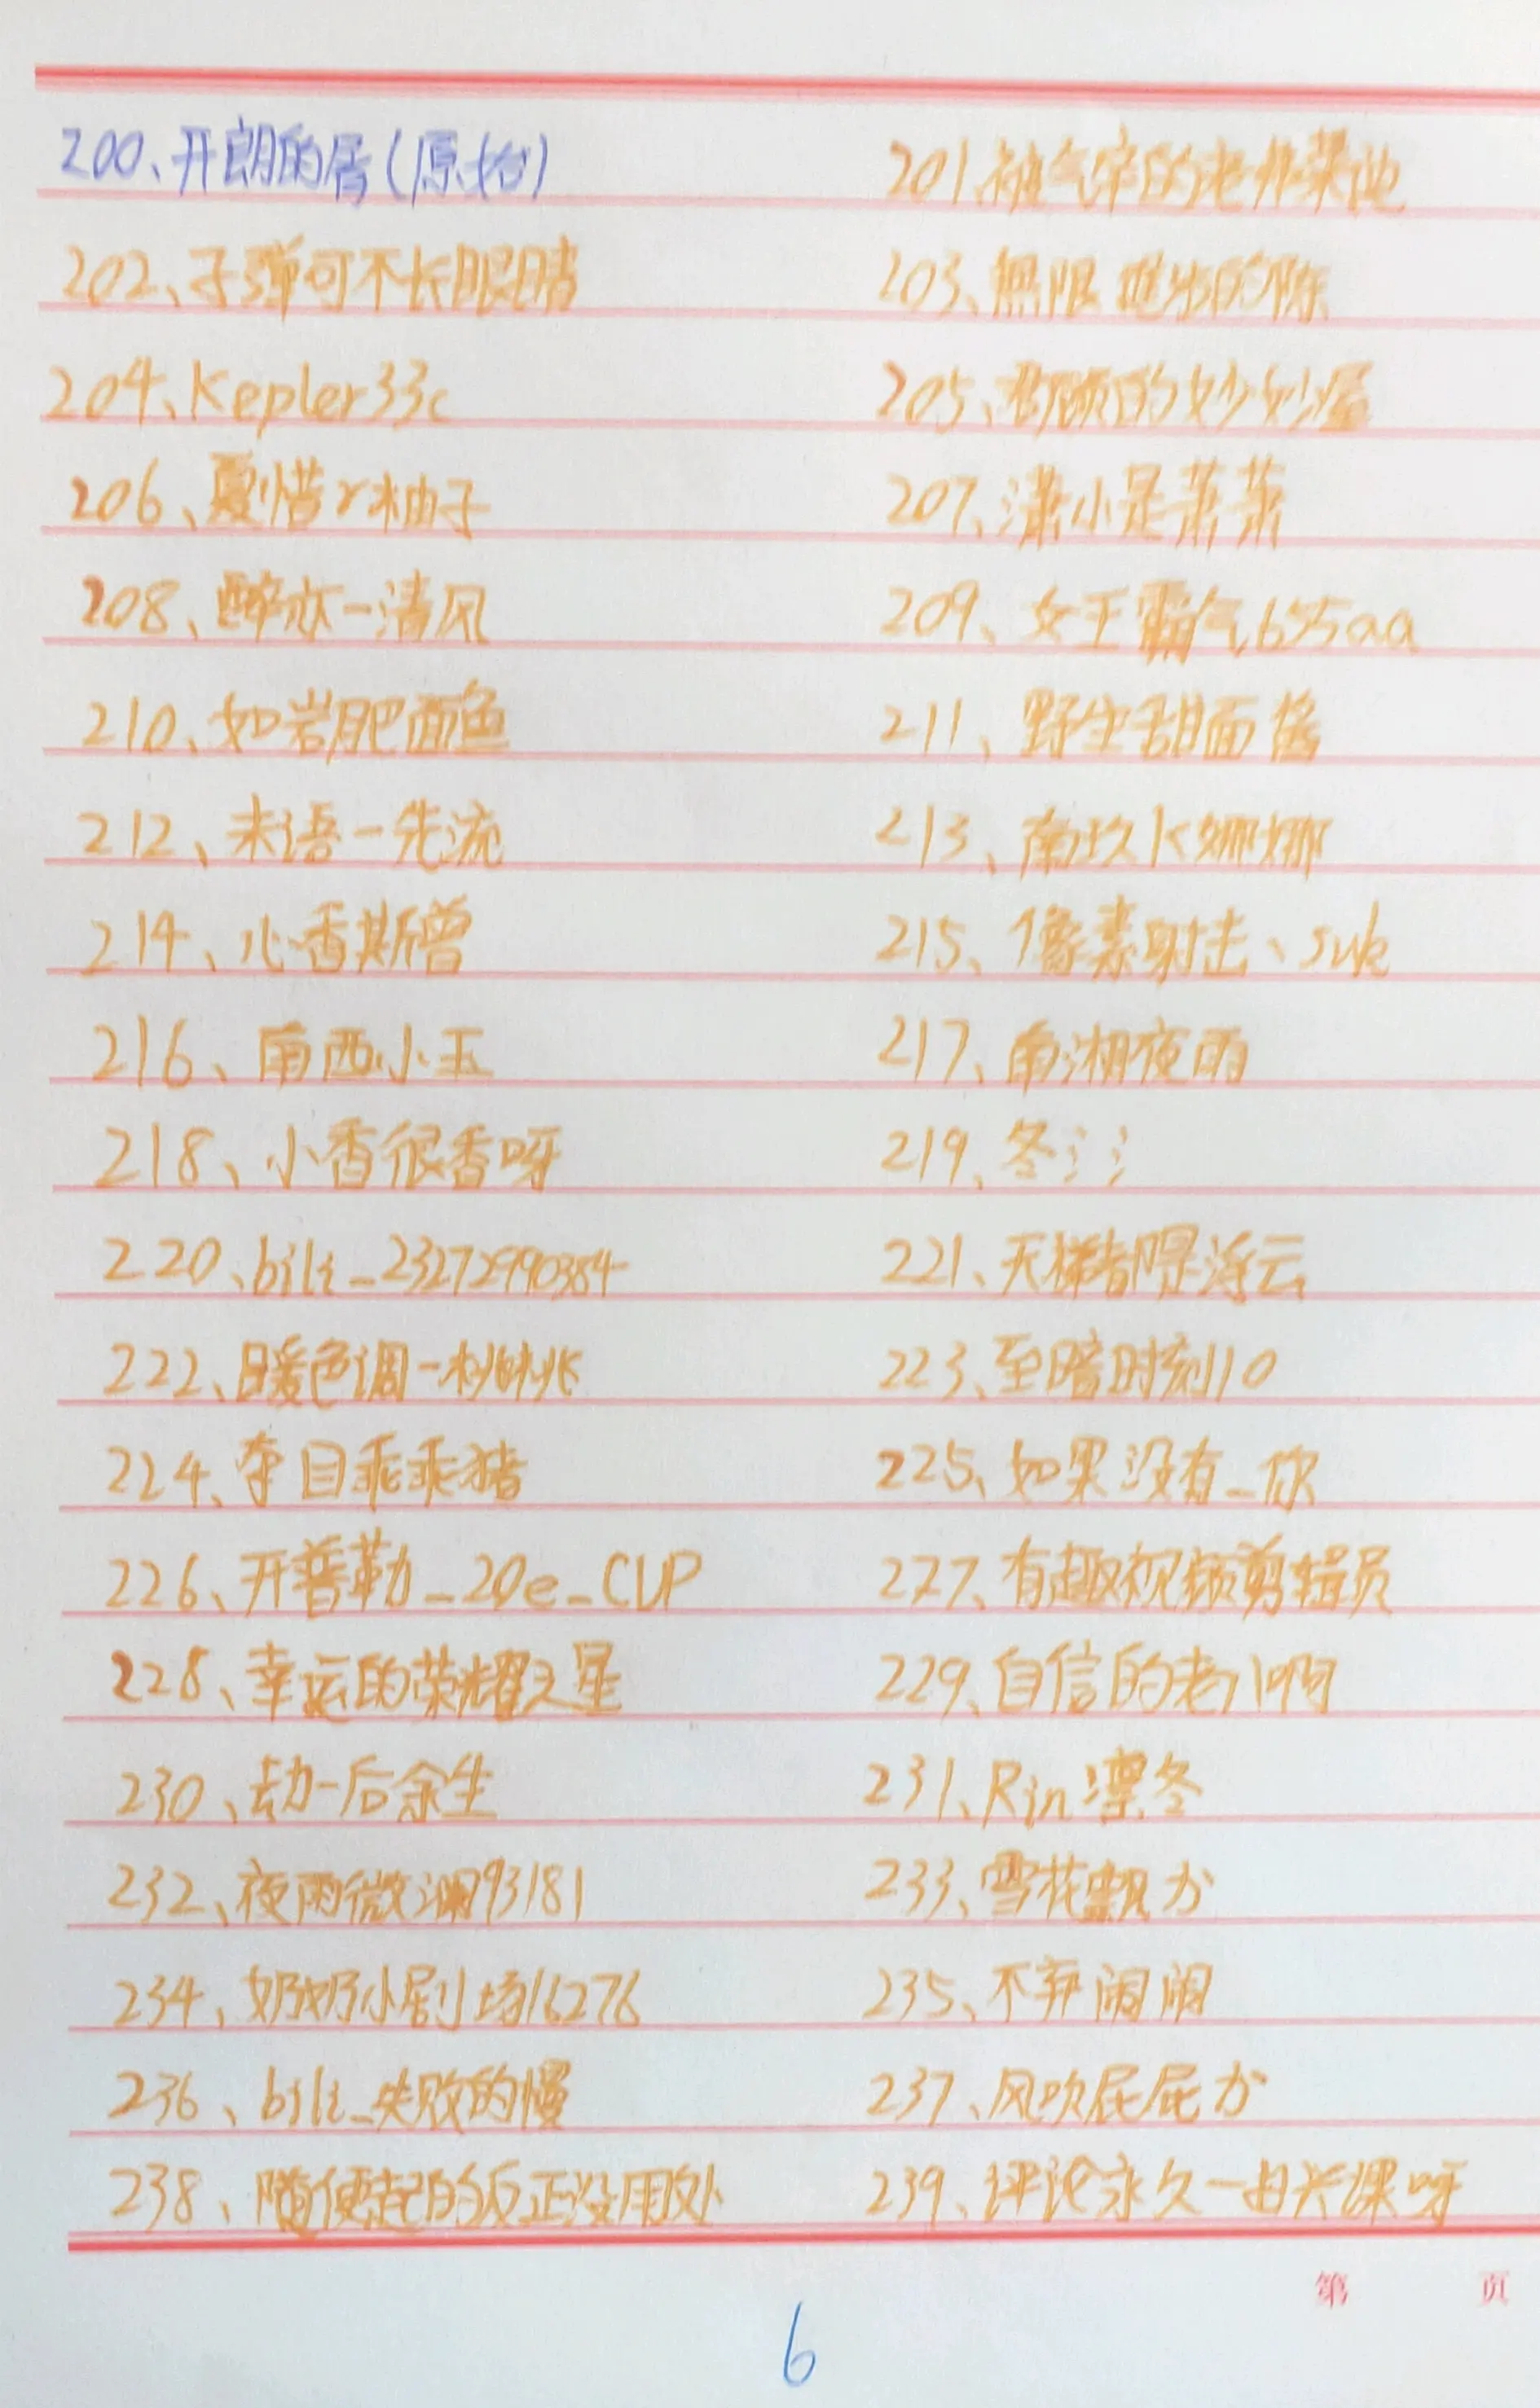 200、开朗的屑(原始) 201、被气笨的老弗莱迪
202、子弹可不长眼睛 203、無限进步的陈
204、Kepler33c 205、的妙妙屋
206、夏惜r柚子 207、潇小是萧萧
208、醉亦一清风 209、女王霸气655aa
210、如岩肥面色 211、野生甜面酱
212、未语一先流 213、南玖K娜娜
214、心香斯曾 215、像素射击、suk
216、南西小玉 217、南湘夜雨
218、小香很香呀 219、冬氵氵
220、bili_23272990384 221、天梯都是浮云
222、暖色调一桃桃 223、至暗时刻10
224、夺目乖乖猪 225、如果没有_你
226、开普勒_20e_CUP 227、有趣视频剪辑员
228、幸运的荣耀之星 229、自信的老八啊
230、劫一后余生 231、Rin凛冬
232、夜雨微澜93181 233、雪花飘か
234、奶奶小剧场16276 235、不弃闹闹
236、bili_失败的慢 237、风吹屁屁か
238、随便起的反正没用处 239、评论永久一由兴课呀
第 页
6